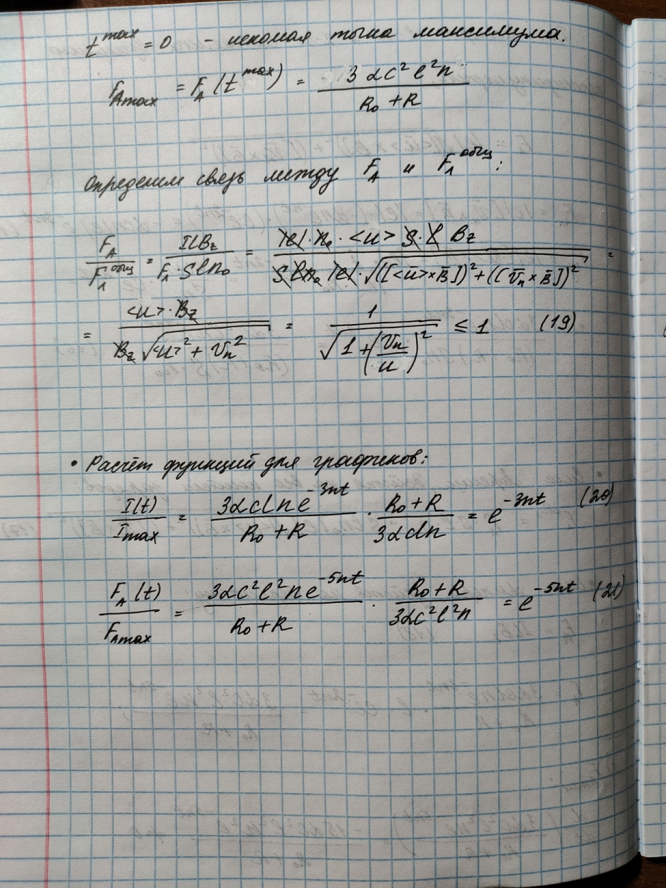 t^max = 0 - искомая точка максимума.
F_Amax = F_A (t^max) = 3αc²l²n / (R₀+R)
Определим связь между F_A и F_Л^общ:
F_A / F_Л^общ = IlB_z / (F_Л · Sln₀) = |e| · n₀ · <u> S · l B_z / (S l n₀ |e| · √(([<u>×B̄])² + ([v̄_n × B̄])²)) =
= <u> · B_z / (B_z √(<u>² + v_n²)) = 1 / √(1 + (v_n / u)²) ≤ 1 (19)
• Расчёт функций для графиков:
I(t) / I_max = 3αclne^(-3nt) / (R₀+R) · (R₀+R) / 3αcln = e^(-3nt) (20)
F_A(t) / F_Amax = 3αc²l²ne^(-5nt) / (R₀+R) · (R₀+R) / 3αc²l²n = e^(-5nt) (21)